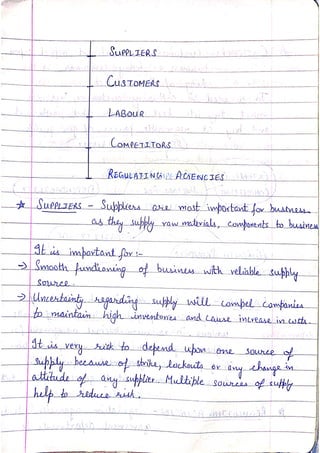 SUPPLIERS
CUSTOMERS
LABOUR
COMPETITORS
REGULATING AGENCIES
* SUPPLIERS - Suppliers are most important for business
as they supply raw materials, components to business
It is important for :-
→ Smooth functioning of business with reliable supply
source.
→ Uncertainty regarding supply will compel companies
to maintain high inventories and cause increase in costs.
It is very risk to depend upon one source of
supply because of strike, lockouts or any change in
attitude of any supplier. Multiple sources of supply
help to reduce risk.